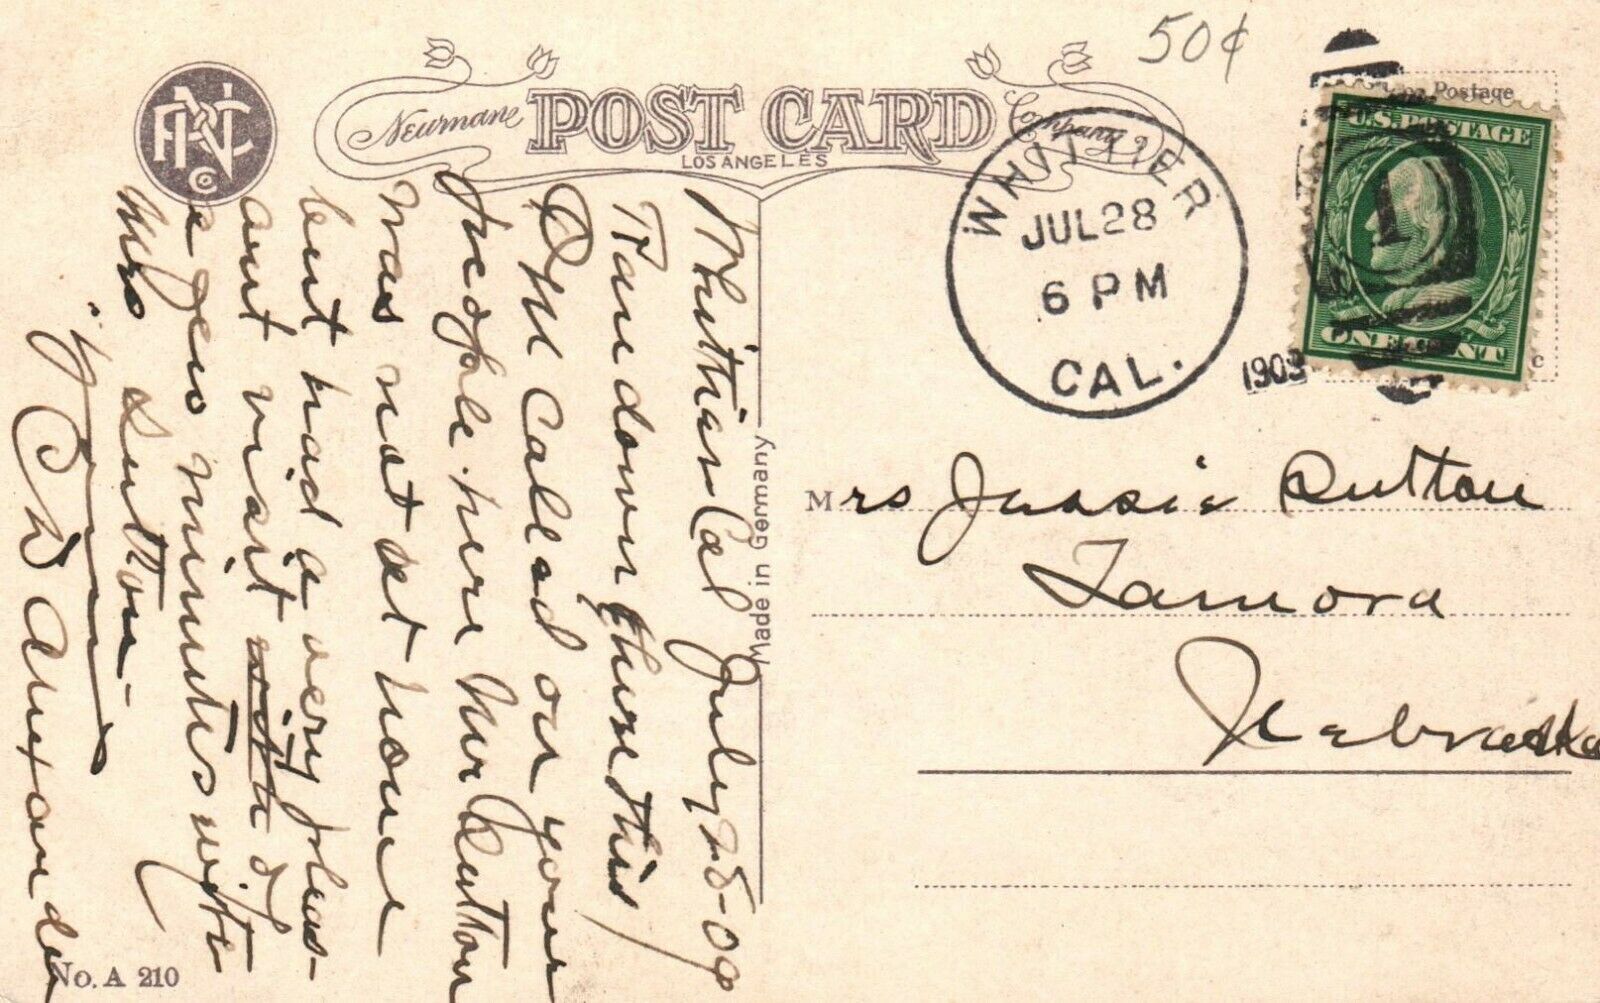 50¢
Neumann POST CARD Company
LOS ANGELES
PNC Co
WHITTIER
JUL 28
6 PM
CAL.
1909
Postage
U.S. POSTAGE
1
ONE CENT
Made in Germany
Whittier Cal July 28-09
I am down
this
P.M. Called on your
people here Mr Sutton
was not at home
but had a very pleas-
ant visit with of
a few minutes with
Mrs Sutton
C W Alexander
No. A 210
Mrs Jessie Sutton
Tamora
Nebraska